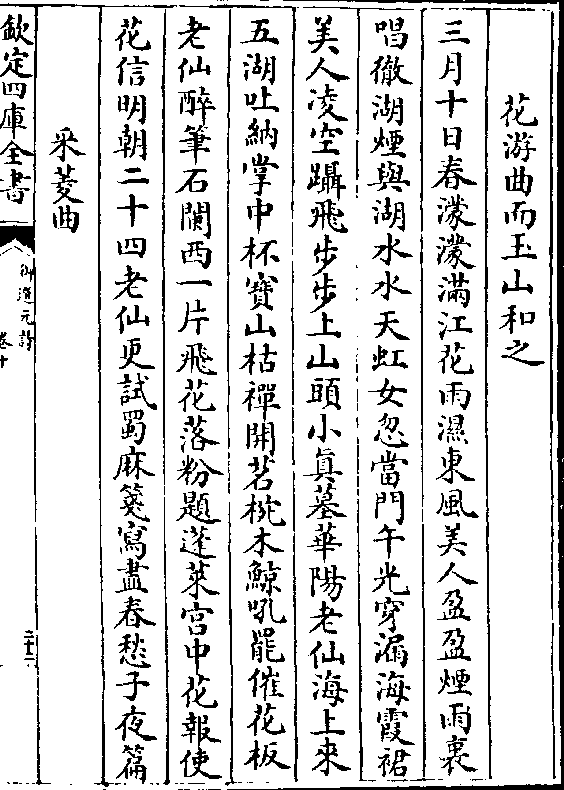 花游曲而玉山和之
三月十日春濛濛滿江花雨濕東風美人盈盈煙雨裏
唱徹湖煙與湖水水天虹女忽當門午光穿漏海霞裙
美人凌空躡飛步步上山頭小眞墓華陽老仙海上來
五湖吐納掌中杯寶山枯禪開茗椀木鯨吼罷催花板
老仙醉筆石闌西一片飛花落粉題蓬萊宫中花報使
花信明朝二十四老仙更試蜀麻箋寫盡春愁子夜篇
采菱曲
欽定四庫全書
御選元詩
卷十